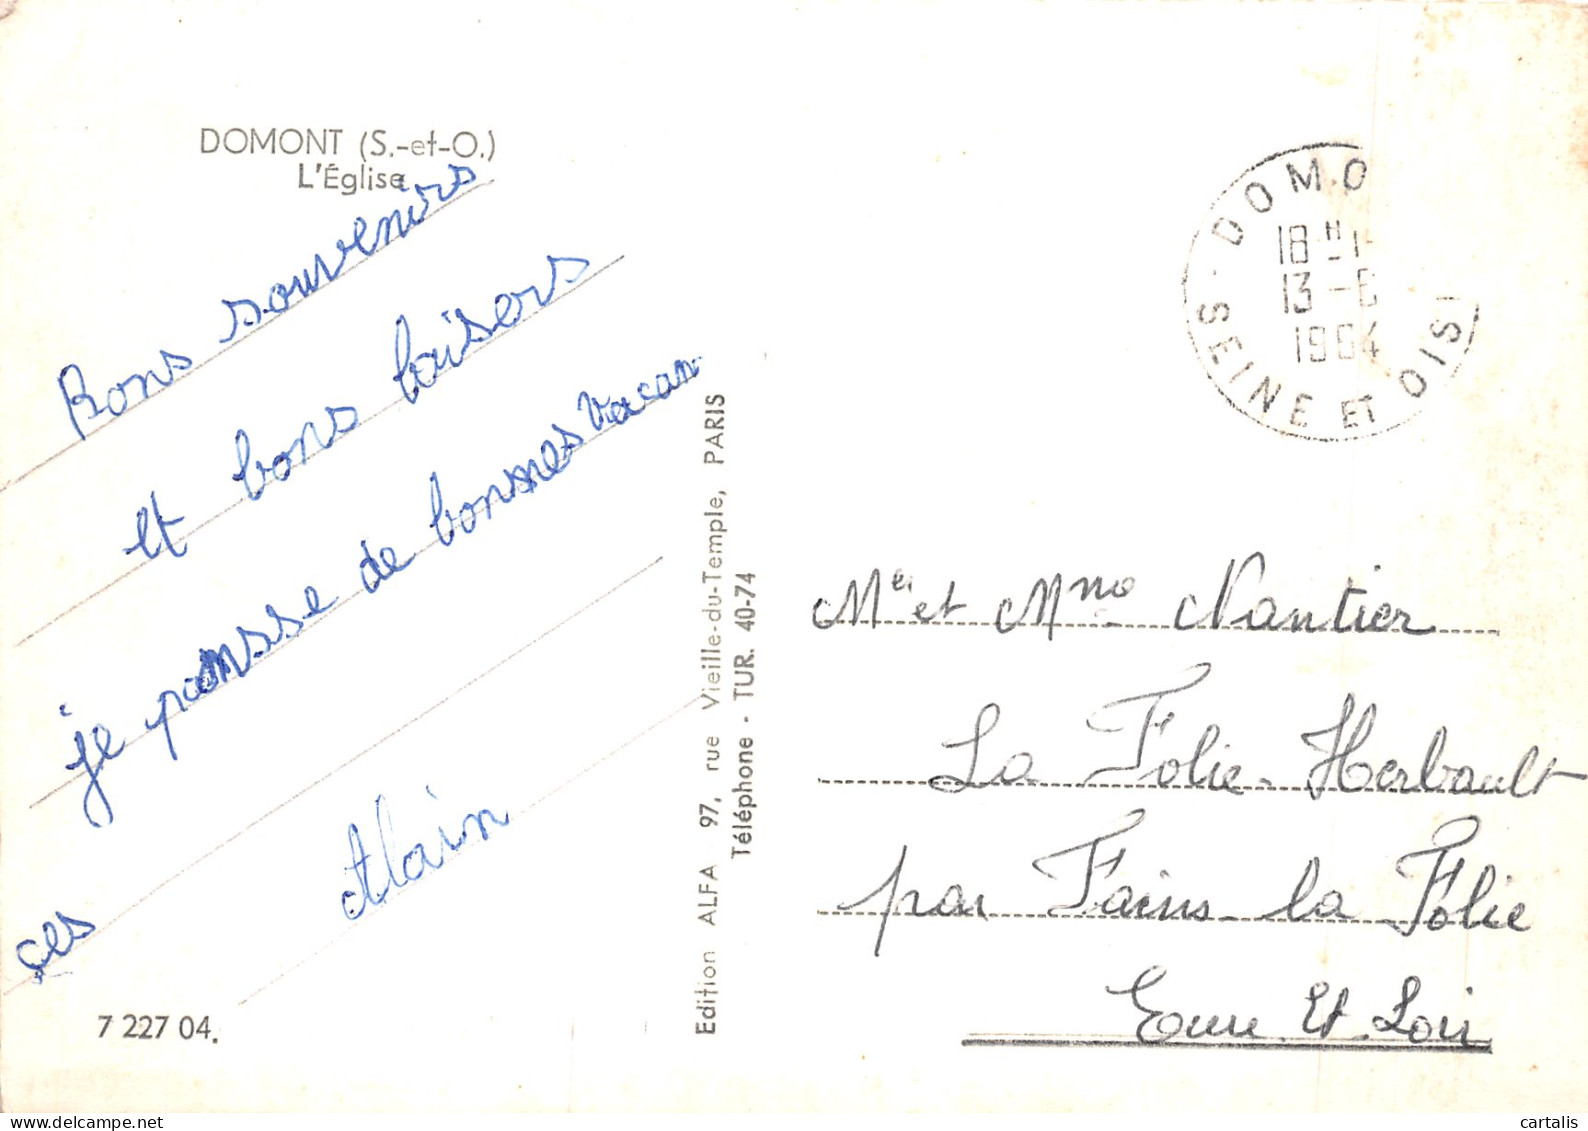 DOMONT (S.-et-O.)
L'Église
Bons souvenirs
et bons baisers
je passse de bonnnes vacan
ces
Alain
7 227 04.
Edition ALFA 97, rue Vieille-du-Temple, PARIS
Téléphone - TUR. 40-74
DOMO
18 H
13 -6
1964
SEINE ET OISE
Mr et Mme Nantier
La Folie-Herbault
par Fains-la Folie
Eure Et Loir
cartalis